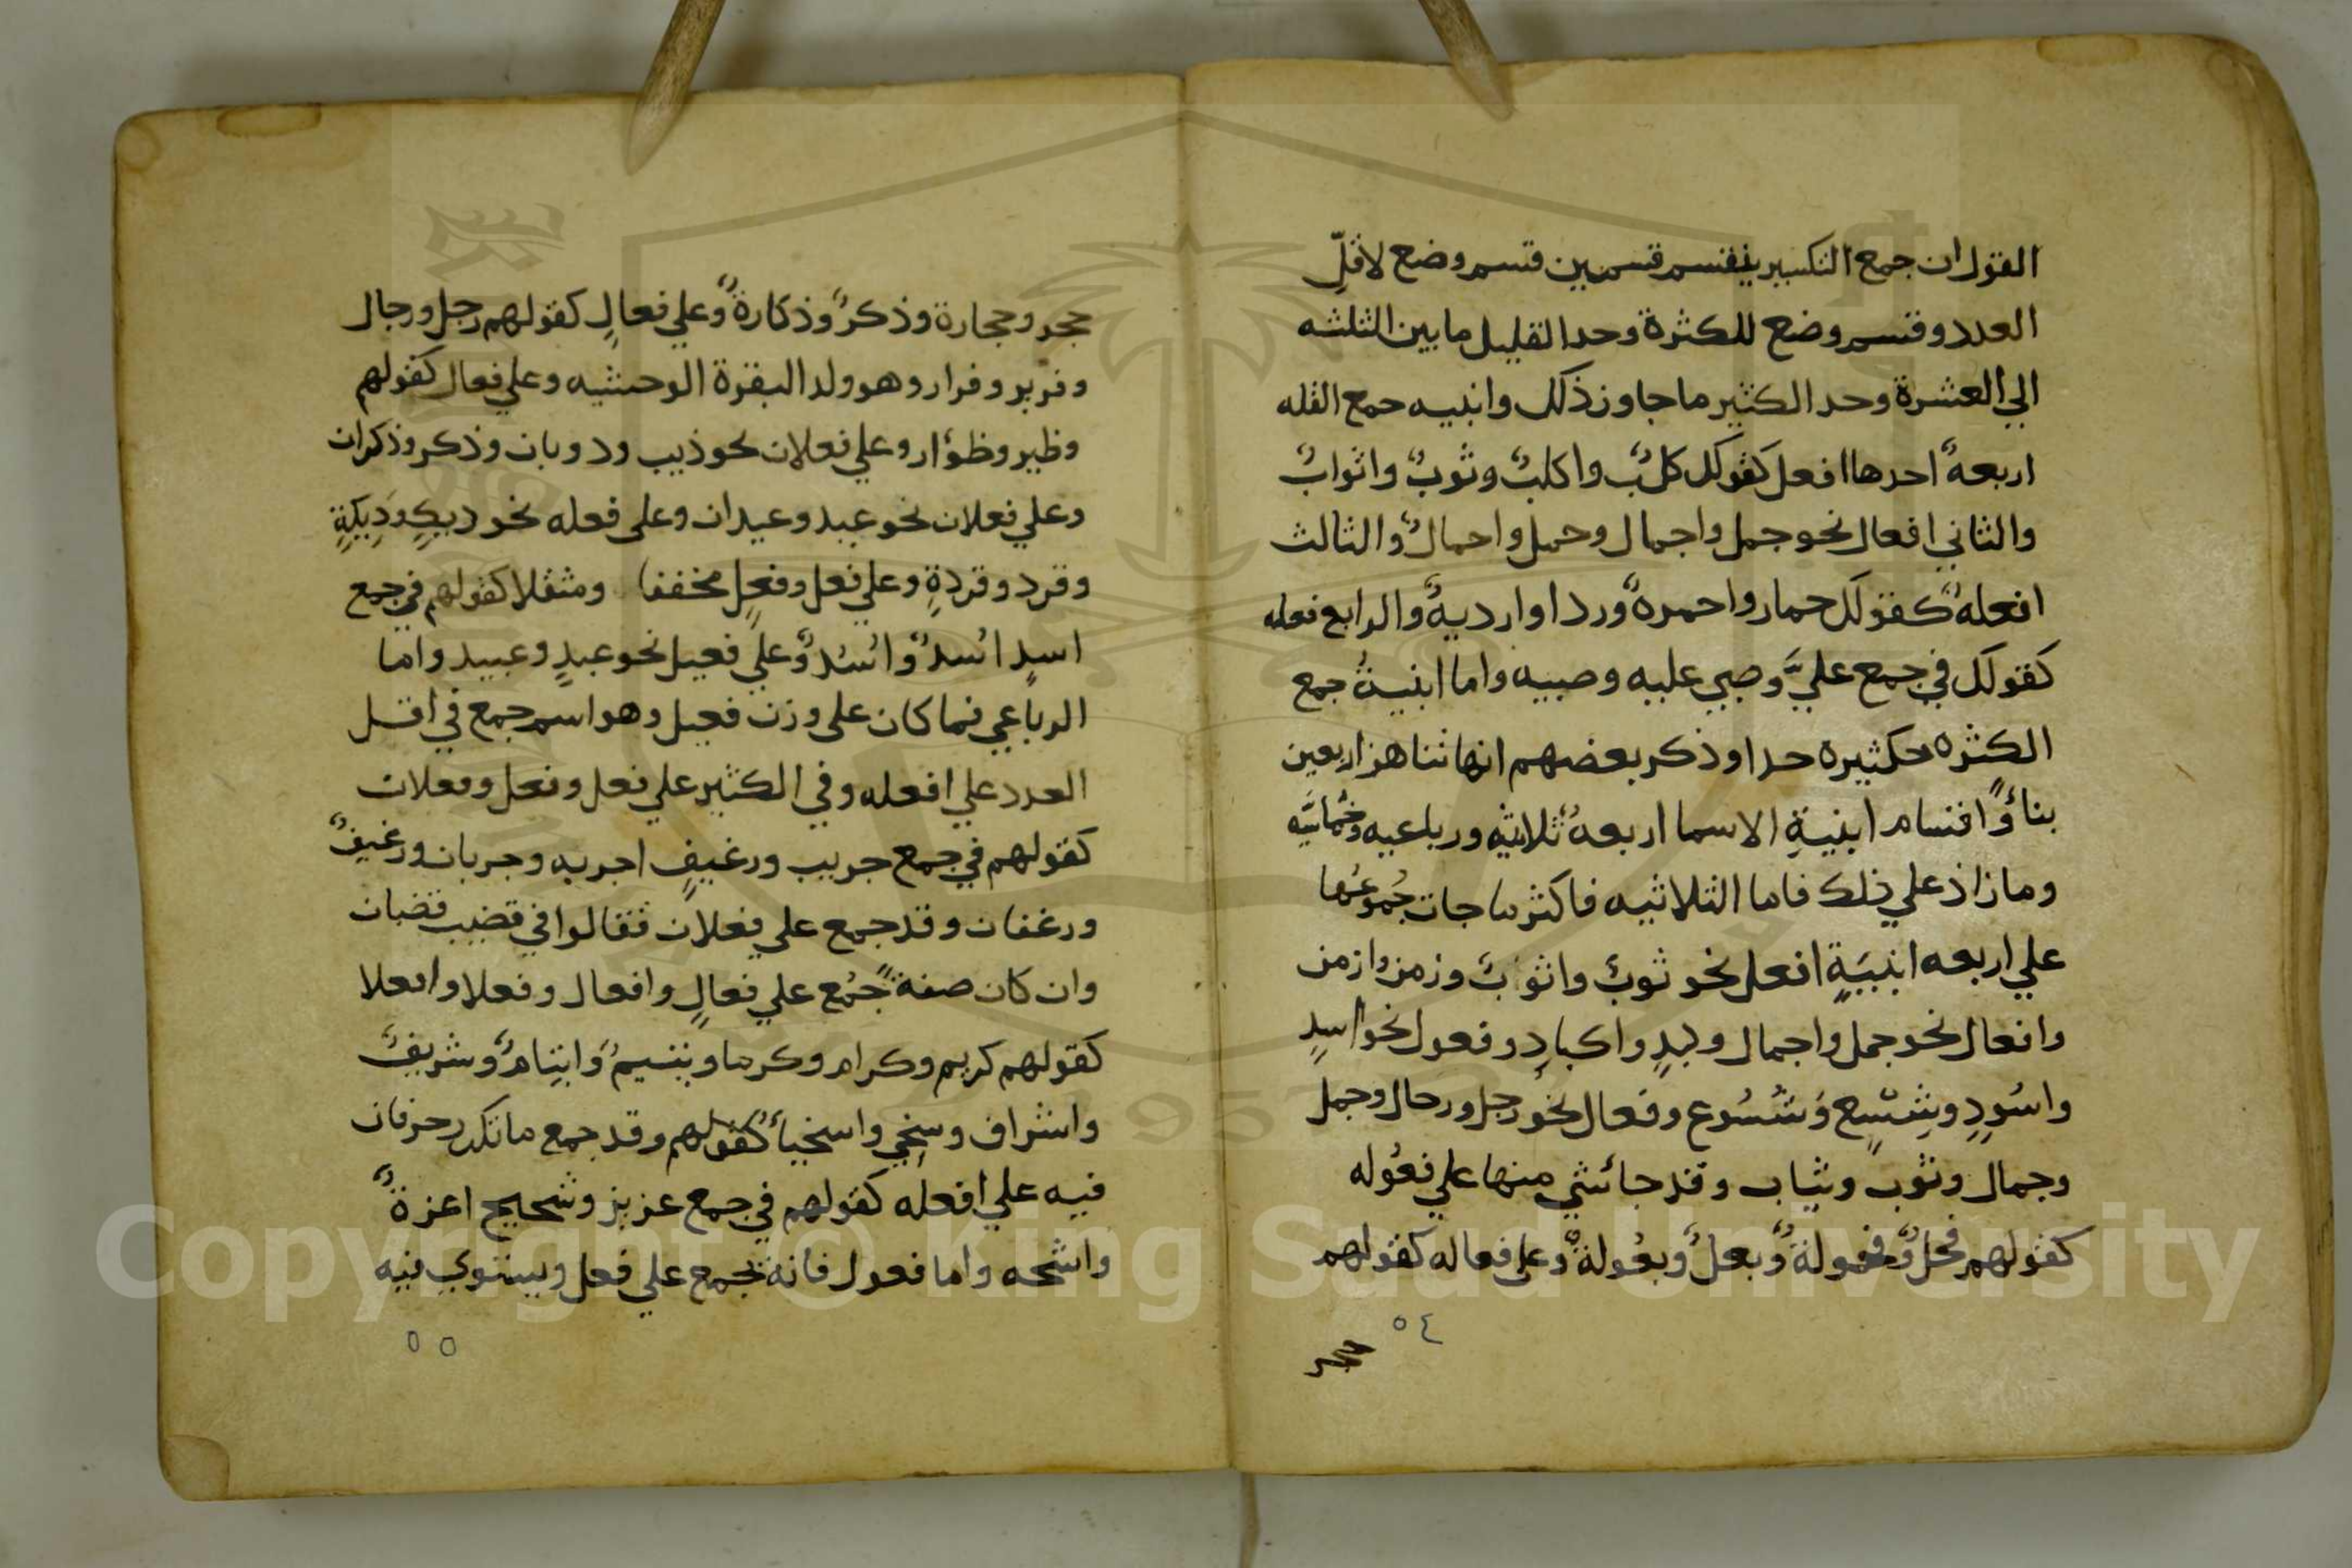 القول ان جمع التكسير ينقسم قسمين قسم وضع لاقلِّ
العدد وقسم وضع للكثرة وحد القليل ما بين الثلثه
الي العشرة وحد الكثير ما جاوز ذلك وابنيه جمع القله
اربعةٌ احدها افعل كقولك كلبٌ واكلبٌ وثوبٌ واثوابٌ
والثاني افعال نحو جمل واجمال وحمل واحمالٌ والثالث
افعلهٌ كقولك حمار واحمرهٌ وردا وارديهٌ والرابع فعله
كقولك في جمع عليَّ وصبي عليه وصبيه واما ابنيةُ جمع
الكثره فكثيرة حدا وذكر بعضهم انها تناهز اربعين
بناءً واقسام ابنيةِ الاسما اربعهٌ ثلاثيه ورباعيه وخُماسيَّه
وما زاد علي ذلك فاما الثلاثيه فاكثر ما جات جُموعُها
علي اربعه ابنيَةٍ افعل نحو ثوبٌ واثوبٌ وزمن وازمن
وافعال نحو جمل واجمال وكبدٍ واكبادٍ وفعول نحو اسدٍ
واسُودٍ وشِسْعٍ وشُسُوع وفعال نحو رجل ورحال وجمل
وجمال وثوب وثياب وقد جا شي منها علي فعُوله
كقولهم فحلٌ وفحولةٌ وبعلٌ وبعُولةٌ وعلي فعاله كقولهم
٥٤
حجر وحجارة وذكرٌ وذكارةٌ وعلي فعالٍ كقولهم رجل ورجال
وفرير وفرار وهو ولد البقرة الوحشيه وعلي فعال كقولهم
وظير وظؤار وعلي فعلان نحو ذيب ودوبان وذكر وذكران
وعلي فعلان نحو عبد وعبدان وعلي فعله نحو ديكٍ ودِيَكةٍ
وقرد وقردةٍ وعلي فعل وفعلٍ مخففا ومثقلا كقولهم في جمع
اسدٍ اسْدٌ واسُدٌ وعلي فعيل نحو عبدٍ وعبيد واما
الرباعي فما كان علي وزن فعيل وهو اسم جمع في اقل
العدد علي افعله وفي الكثير علي فعل وفعل وفعلان
كقولهم في جمع جريب ورغيفٍ اجربه وجربان ورغيفٌ
ورغفان وقد جمع علي فعلان فقالوا في قضيب قضبان
وان كان صفةً جُمع علي فعالٍ وافعال وفعلا وافعلا
كقولهم كريم وكرام وكرما ويتيمٌ وايتامٌ وشريفٌ
واشراف وسخي واسخياءُ كقولهم وقد جمع ما تكرر حرفان
فيه علي افعله كقولهم في جمع عزيز وشحيح اعزةٌ
واشحه واما فعول فانه يجمع علي فعل ويستوي فيه
٥٥
Copyright © King Saud University